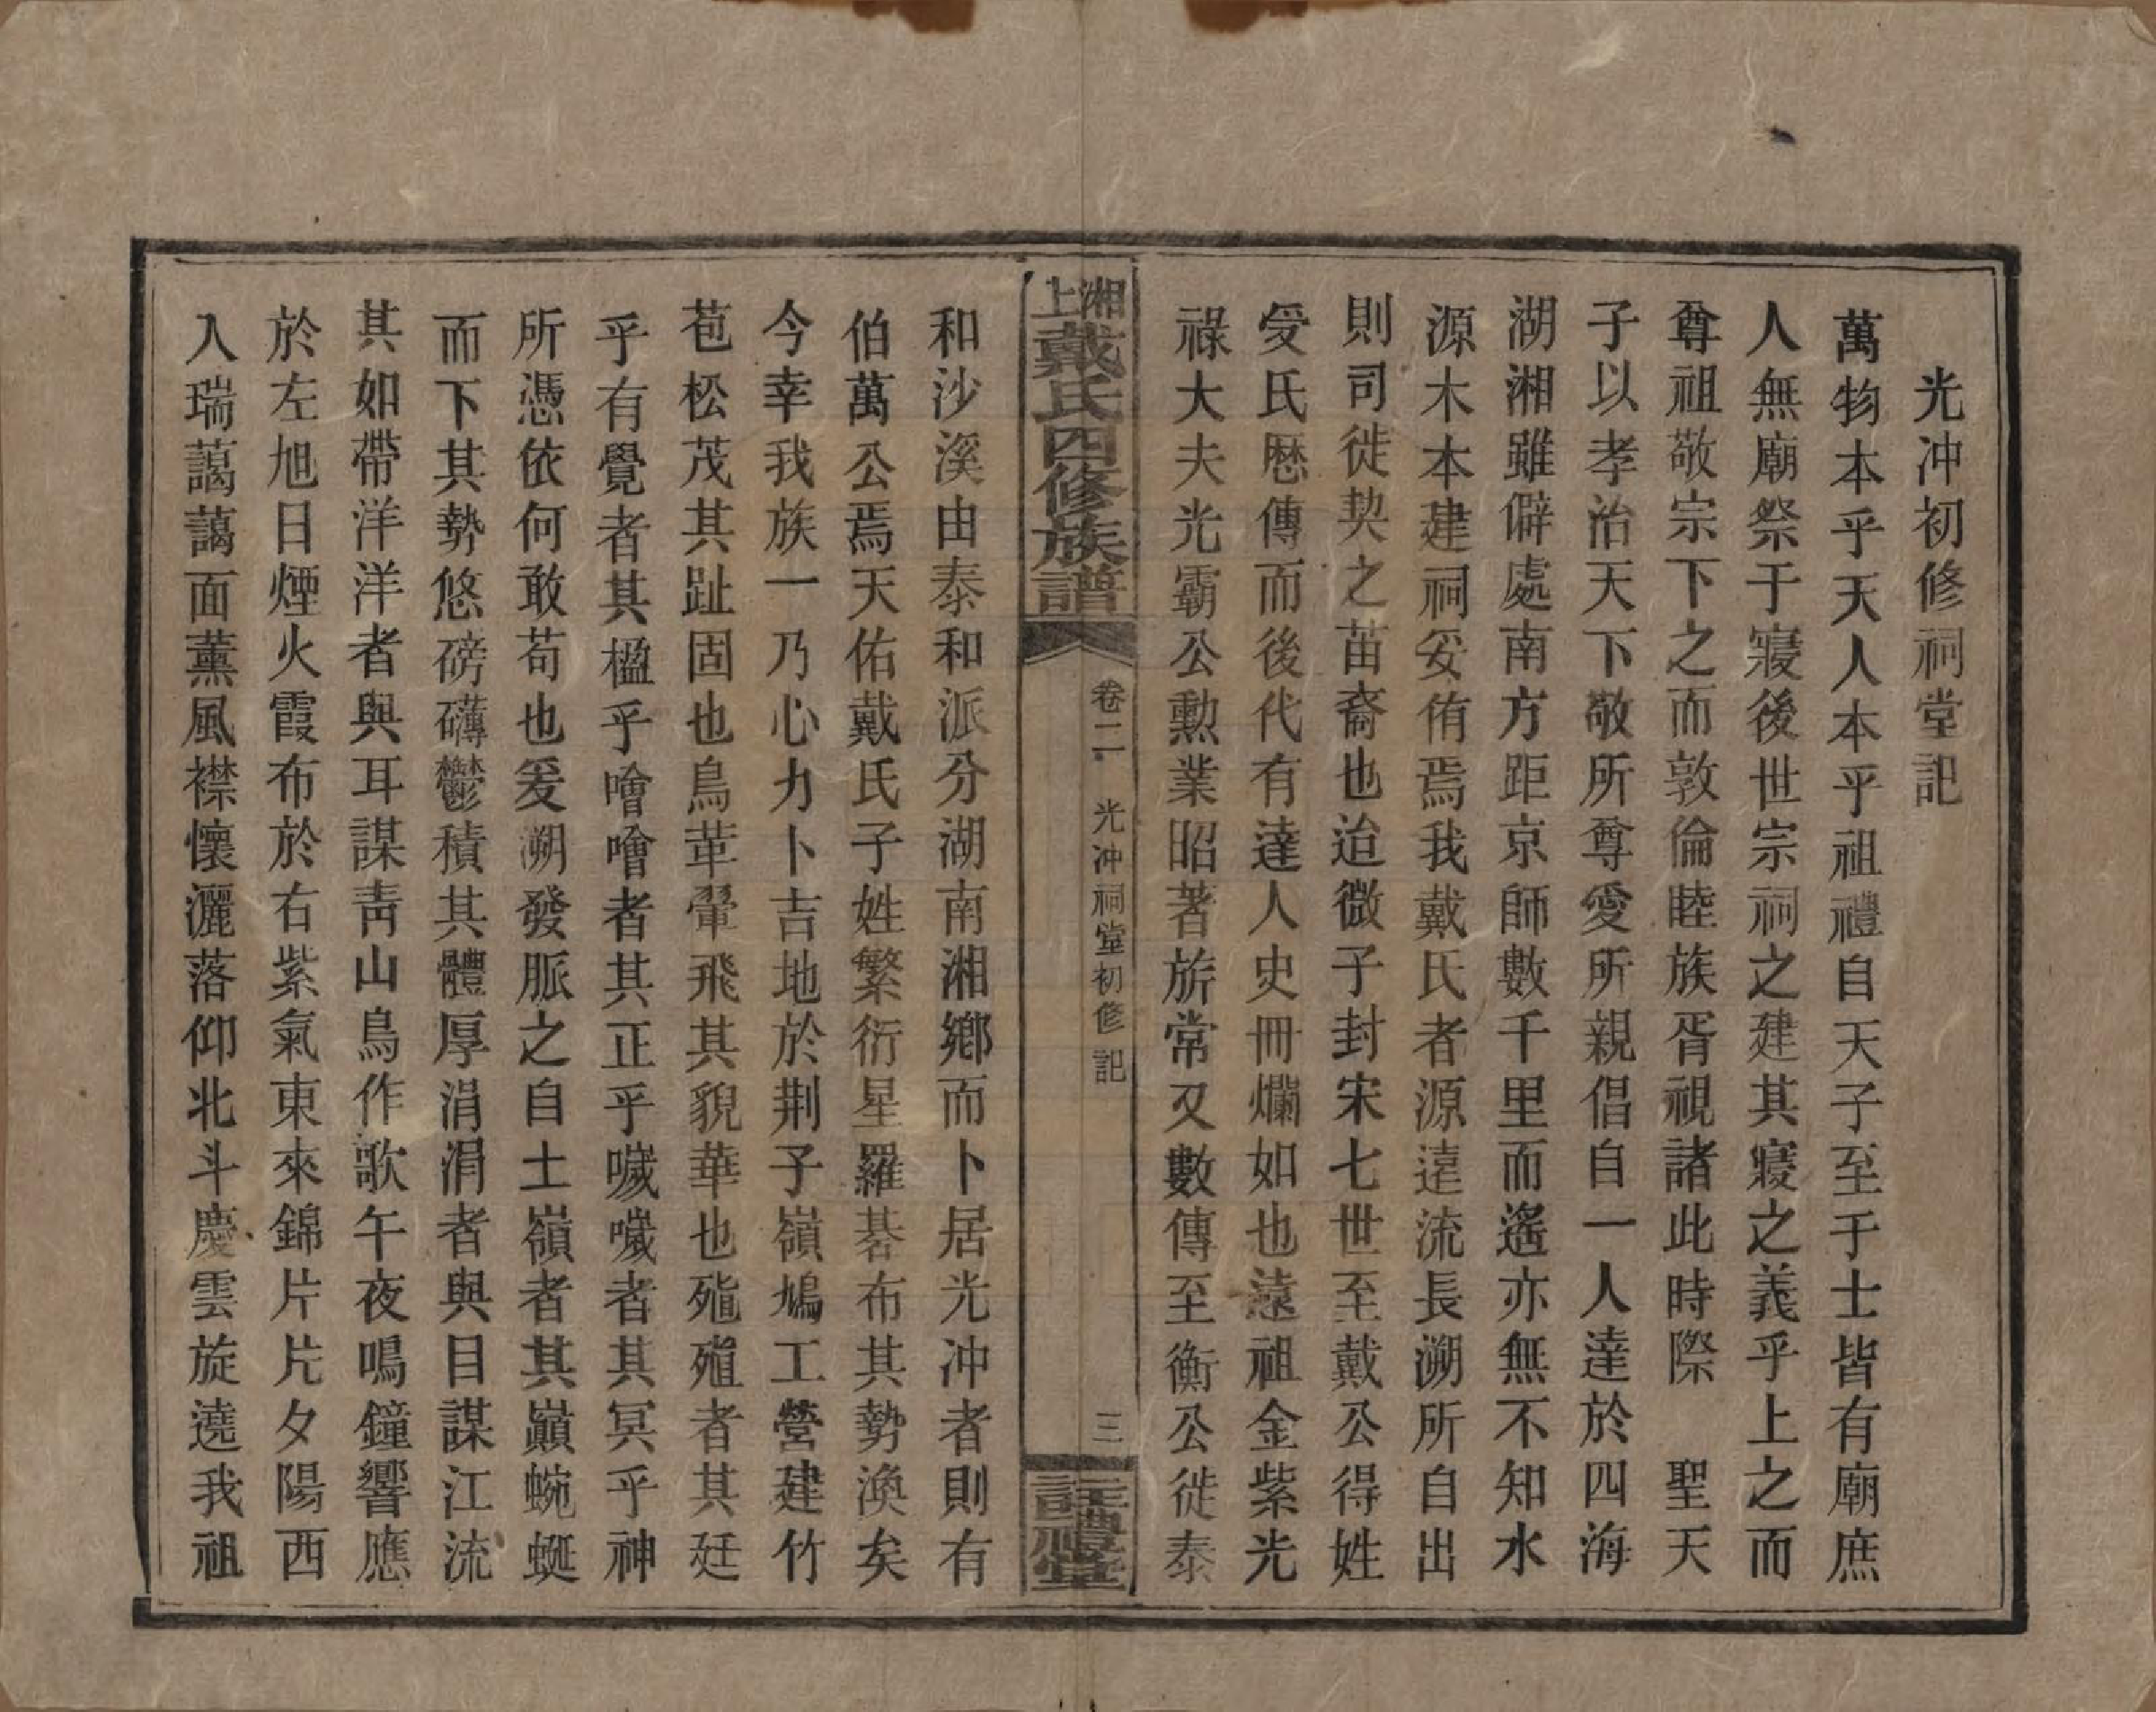 光冲初修祠堂記
萬物本乎天人本乎祖禮自天子至于士皆有廟庶
人無廟祭于寢後世宗祠之建其寢之義乎上之而
尊祖敬宗下之而敦倫睦族胥視諸此時際　聖天
子以孝治天下敬所尊愛所親倡自一人達於四海
湖湘雖僻處南方距京師數千里而遙亦無不知水
源木本建祠妥侑焉我戴氏者源遠流長溯所自出
則司徒契之苗裔也迨微子封宋七世至戴公得姓
受氏歷傳而後代有達人史冊爛如也遠祖金紫光
祿大夫光霸公勳業昭著旂常又數傳至衡公徙泰
上湘戴氏四修族譜
卷二　光冲祠堂初修記
三
註禮堂
和沙溪由泰和派分湖南湘鄉而卜居光冲者則有
伯萬公焉天佑戴氏子姓繁衍星羅碁布其勢渙矣
今幸我族一乃心力卜吉地於荆子嶺鳩工營建竹
苞松茂其趾固也鳥革翬飛其貌華也殖殖者其廷
乎有覺者其楹乎噲噲者其正乎噦噦者其冥乎神
所憑依何敢苟也爰溯發脈之自土嶺者其巔蜿蜒
而下其勢悠磅礴鬱積其體厚涓涓者與目謀江流
其如帶洋洋者與耳謀靑山鳥作歌午夜鳴鐘響應
於左旭日煙火霞布於右紫氣東來錦片片夕陽西
入瑞藹藹面薰風襟懷灑落仰北斗慶雲旋遶我祖